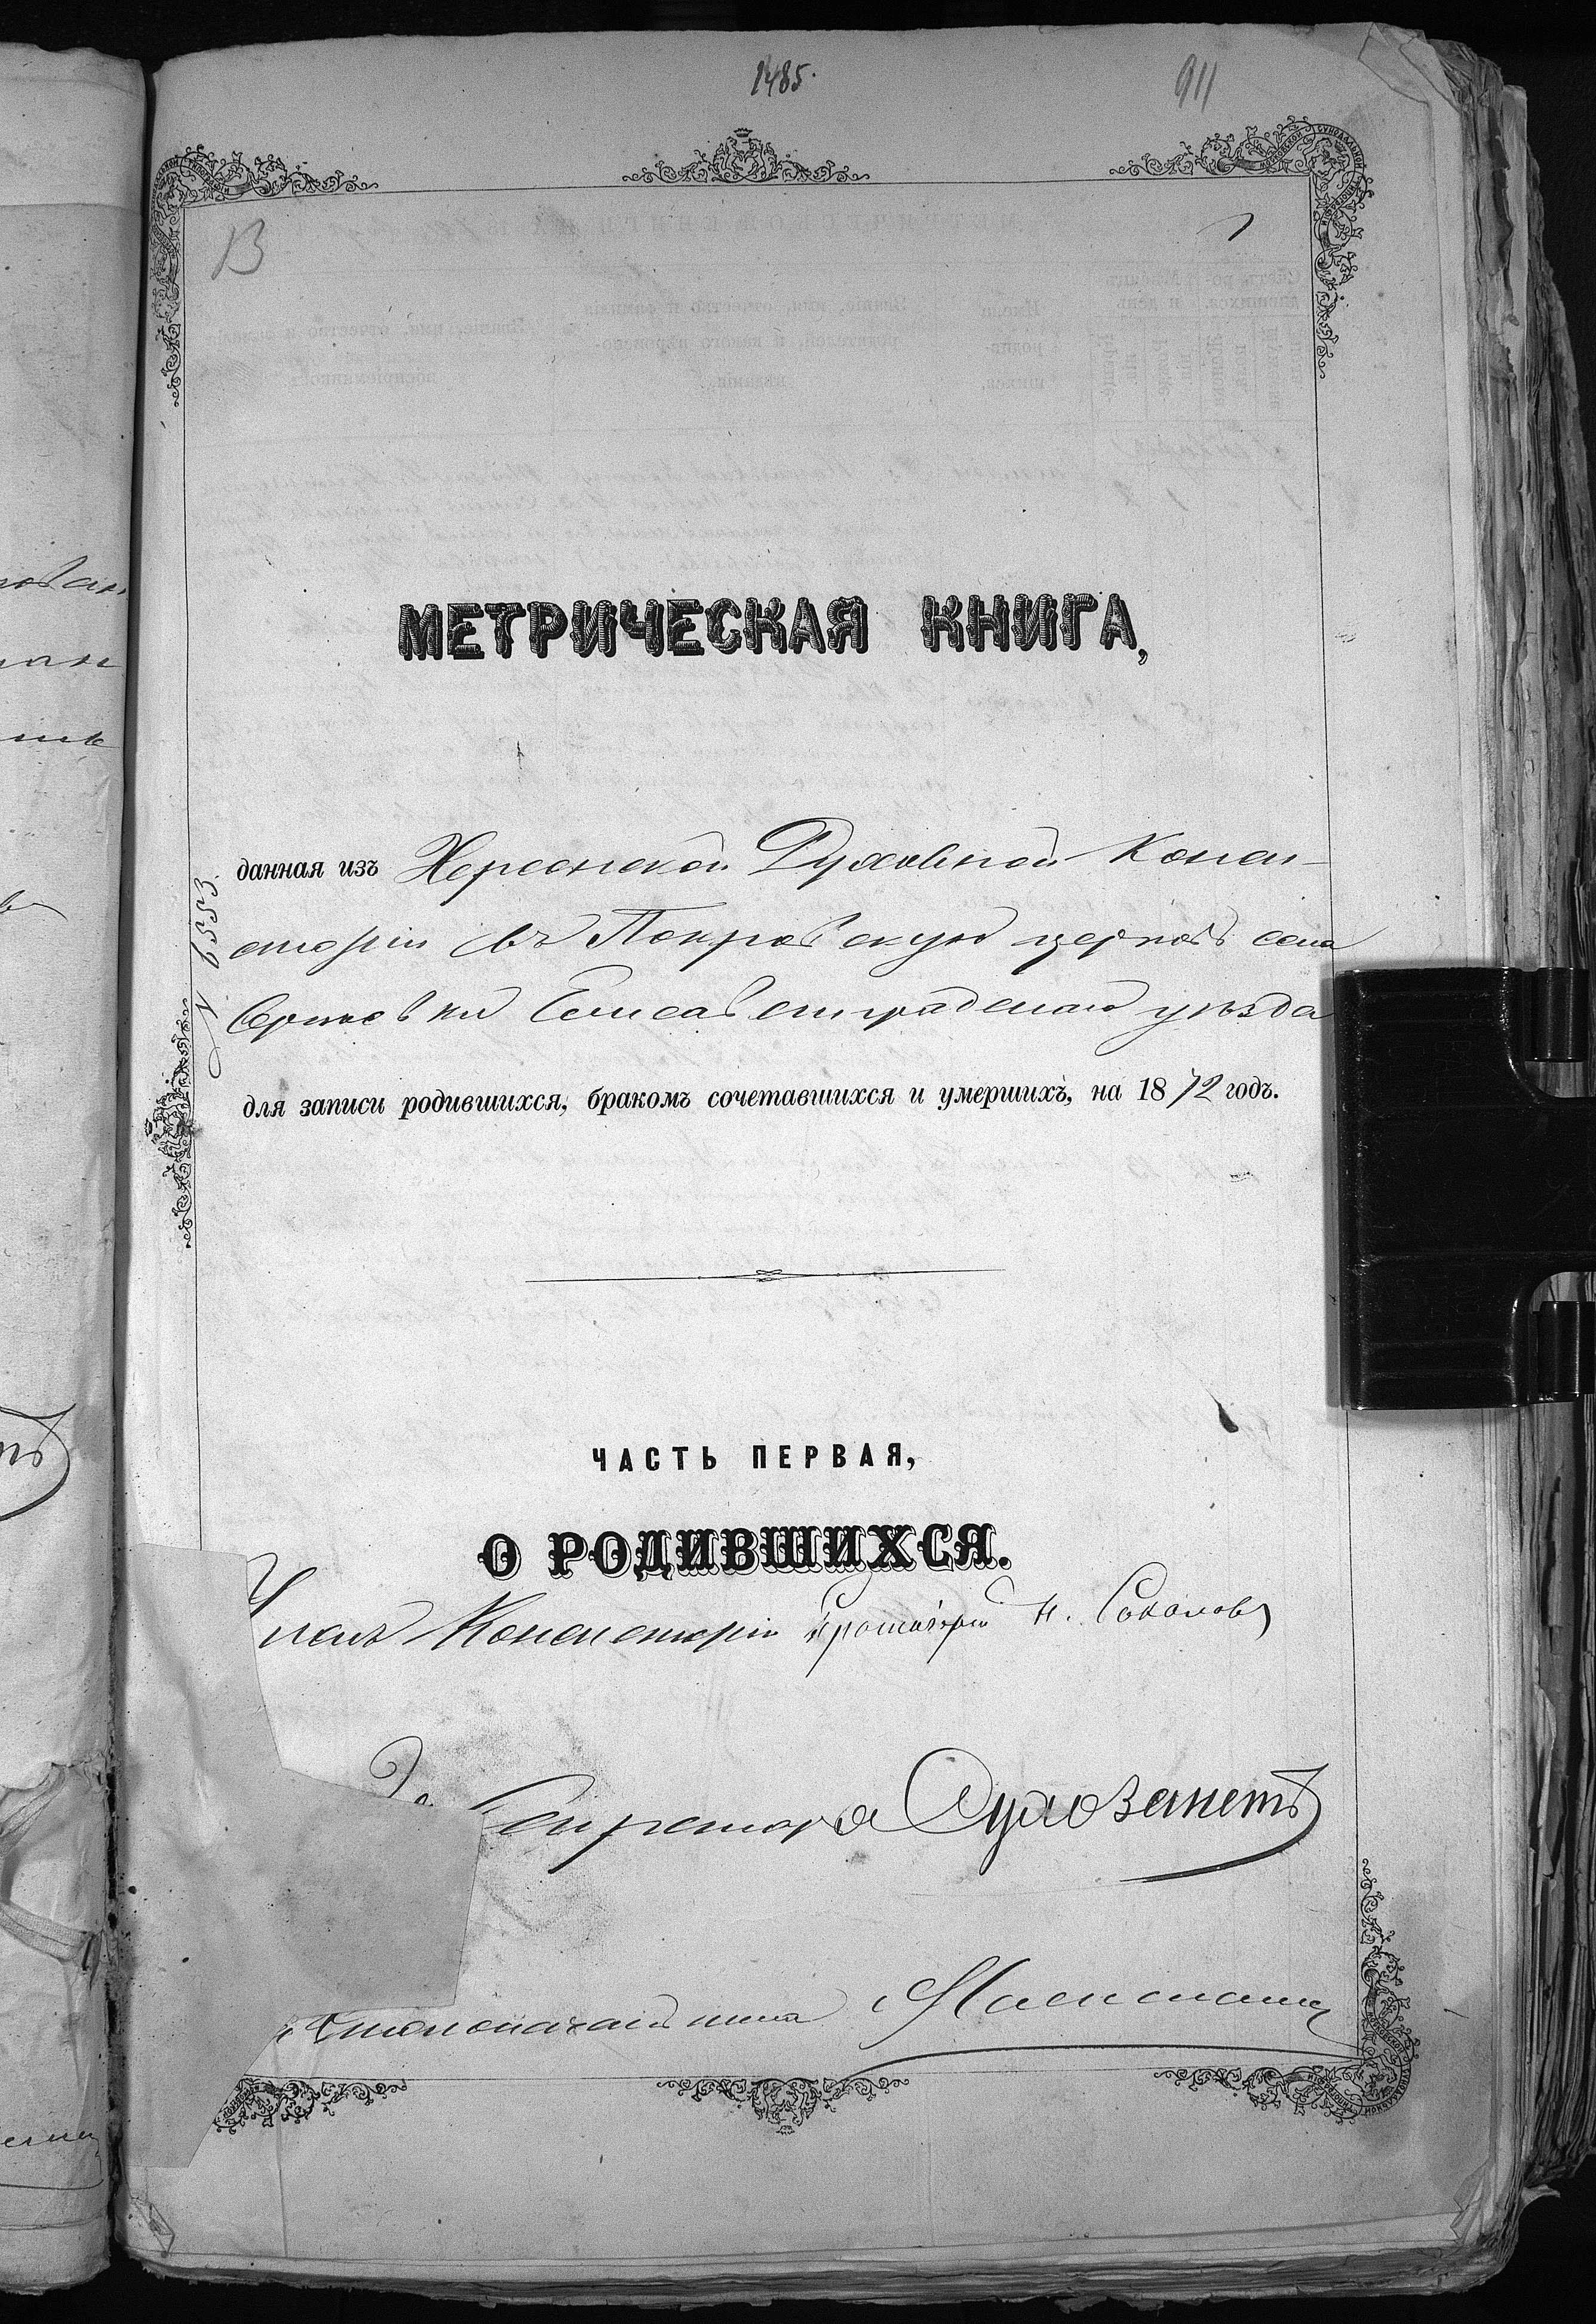 1485.
911
В
1
МЕТРИЧЕСКАЯ КНИГА,
данная изъ Херсонской Духовной Конси-
сторіи въ Покровскую церковь села
Елисаветградскаго уѣзда
№ 6553.
для записи родившихся, бракомъ сочетавшихся и умершихъ, на 1872 годъ.
ЧАСТЬ ПЕРВАЯ,
О РОДИВШИХСЯ.
Членъ Консисторіи Протоіерей Н. Соколовъ
За Секретаря
Столоначальника